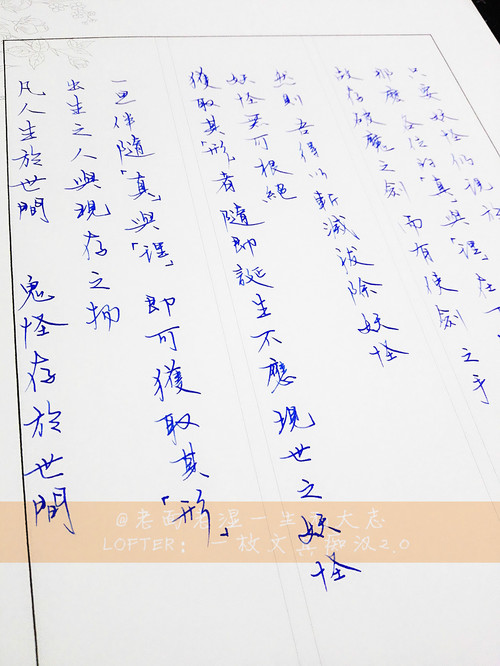 凡人生於世間 鬼怪存於世間
出生之人與現存之物
一旦伴隨「真」與「理」 即可獲取其「形」
獲取其「形」者隨即誕生不應現世之妖怪
妖怪無可根絕
然則 吾得以斬滅拔除妖怪
故存破魔之劍 而有使劍之手
那麼 各位的「真」與「理」在
只要 妖怪仍現於
@老西老湿一生 大志
LOFTER：一枚文具痴汉2.0